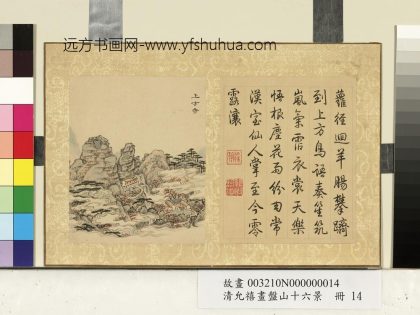 远方书画网-www.yfshuhua.com
上方寺
蘿徑迴羊腸攀躋
到上方鳥語奏笙筑
嵐氣霑衣裳天樂
悟根塵花雨紛常
漢宮仙人掌至今零
露瀼
故畫 003210N000000014
清允禧畫盤山十六景 冊 14